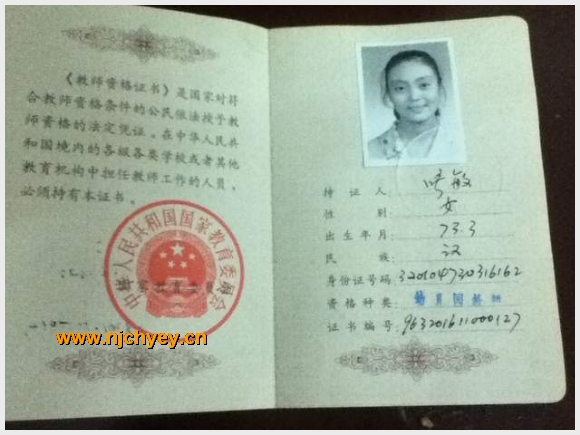 《教师资格证书》是国家对符
合教师资格条件的公民依法授予教
师资格的法定凭证。在中华人民共
和国境内的各级各类学校或者其他
教育机构中担任教师工作的人员，
必须持有本证书。
中华人民共和国国家教育委员会
www.njchyey.cn
持证人 敏
性别 女
出生年月 73.3
民族 汉
身份证号码 320104730316162
资格种类 幼儿园教师
证书编号 963201611000127